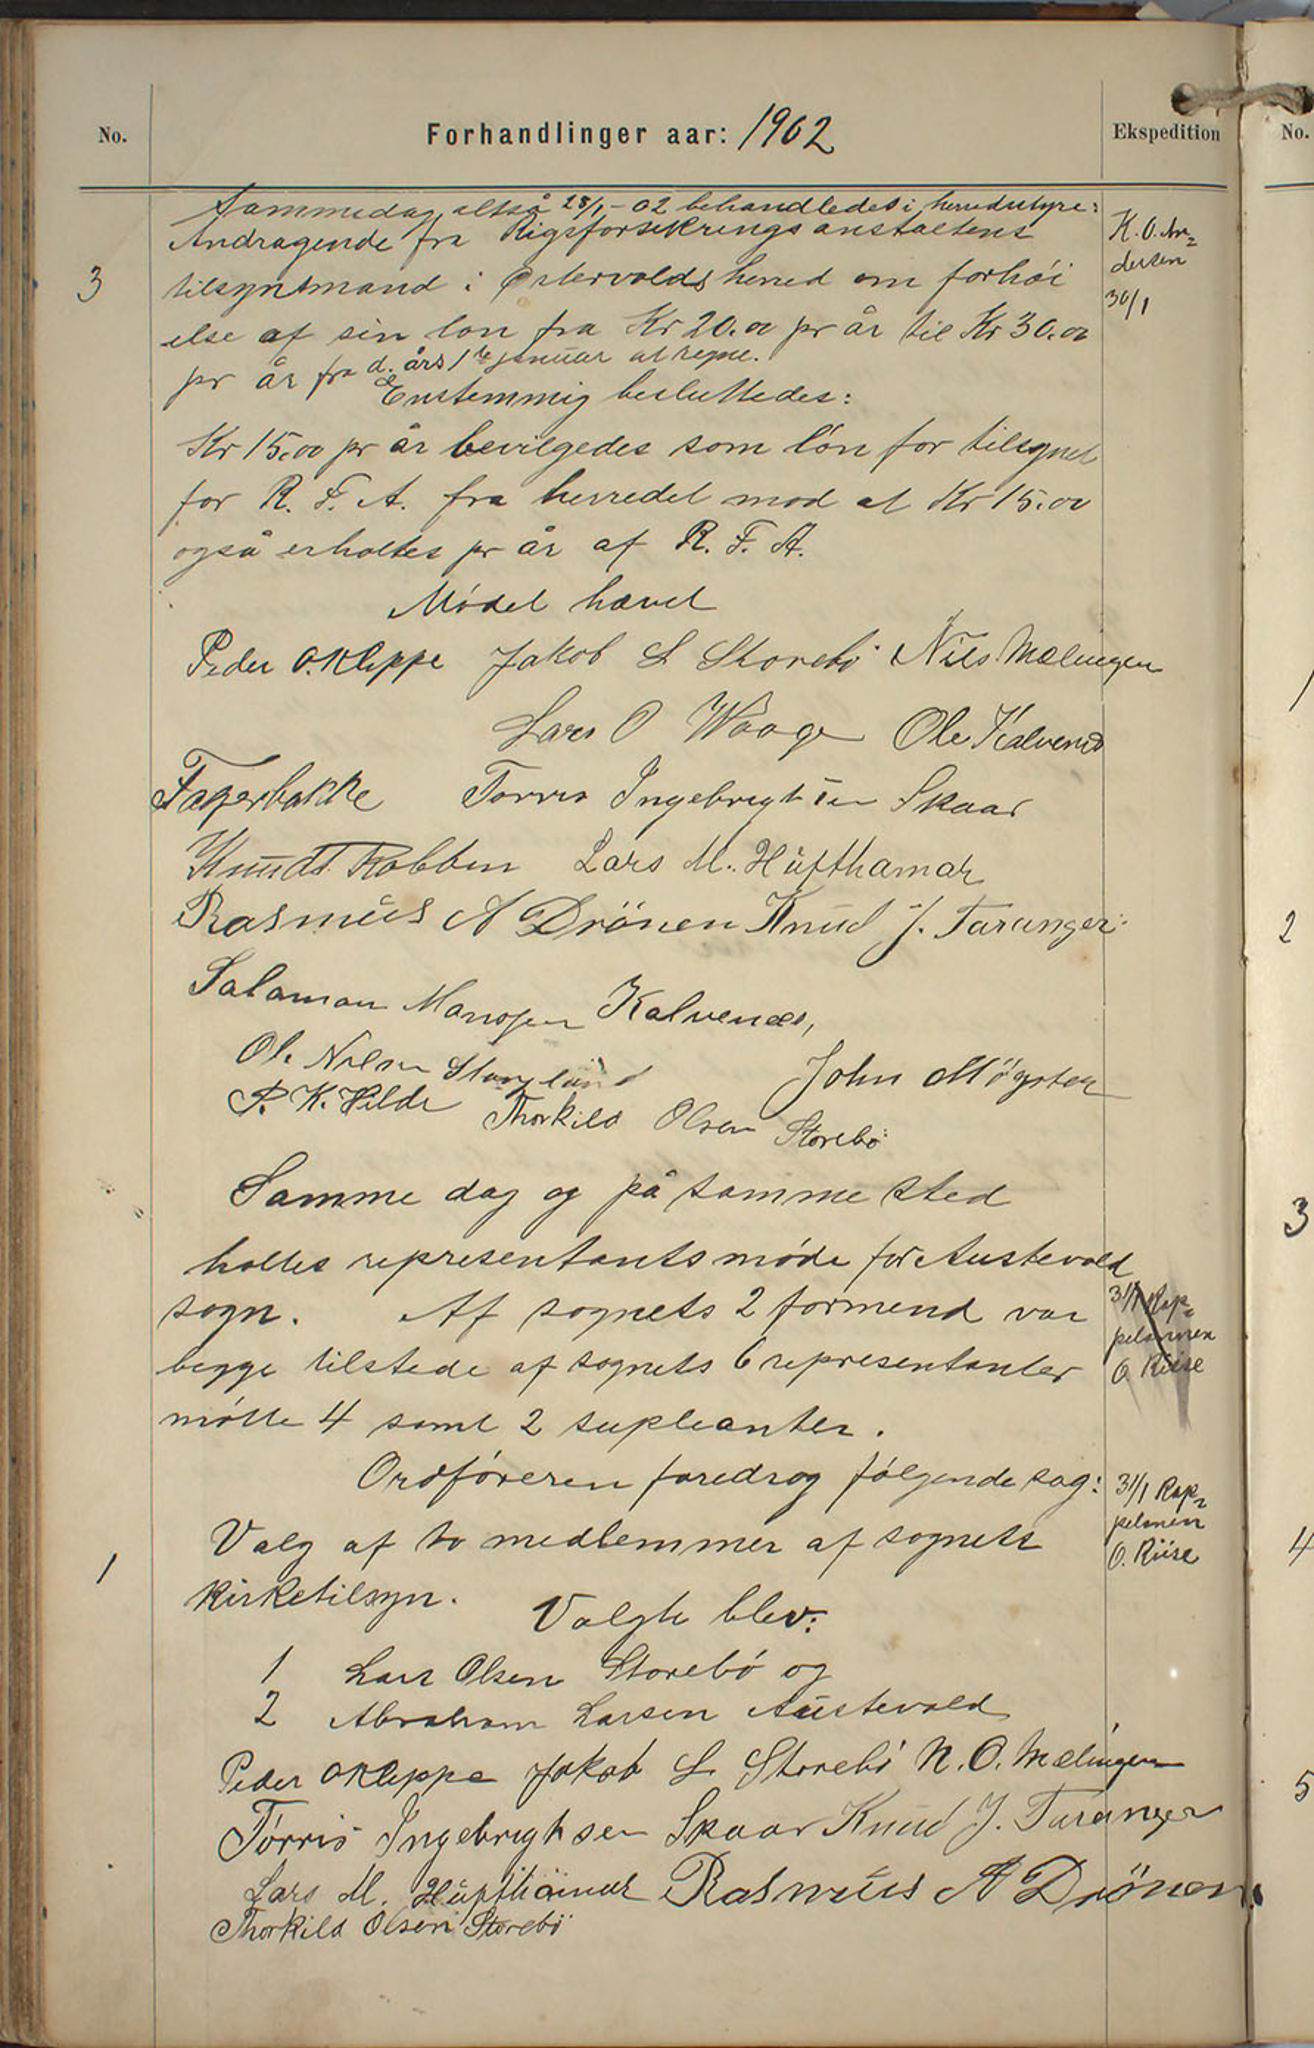 No.
Forhandlinger aar: 1902
Ekspedition
No.
Sammedag, altså 28/1-02 behandledes i herredstyre:
3
Andragende fra Rigsforsikringsanstaltens
tilsynsmand i Østervolds herred om forhöi
else af sin lön fra Kr 20.00 pr år til Kr 30.00
pr år fra d. års 1ste januar at regne.
K. O. An-
dersen
30/1
Enstemmig besluttedes:
Kr 15.00 pr år bevilgedes som lön for tilsynet
for R. F. A. fra herredet mod at Kr 15.00
også erholtes pr år af R. F. A.
Mödet hævet
Peder O. Kleppe Jakob L Storebö Nils Mælingen
Lars O Waage Ole Kalvenes
Fagerbakke Torris Ingebrigtsen Skaar
Knud Robben Lars M. Hüfthamar
Rasmus A Drönen Knud J. Taranger
Salamon Monssen Kalvenæs,
Ole Nilsen Stangeland John Mögster
P. K. Hilde Thorkild Olsen Storebö
Samme dag og på samme sted
holtes representantsmöde for Austevold
sogn. Af sognets 2 formend var
begge tilstede af sognets 6 representanter
mötte 4 samt 2 supleanter.
31/1 Kap-
pelannen
O. Riise
Ordföreren foredrog fölgende sag:
1
Valg af to medlemmer af sognets
kirketilsyn.
31/1 Kap-
pelanen
O. Riise
Valgte blev:
1 Lars Olsen Storebö og
2 Abraham Larsen Austevold
Peder O Kleppe Jakob L Storebö N. O. Mælingen
Törris Ingebrigtsen Skaar Knud J. Taranger
Lars M. Hüfthamar Rasmus A Drönen.
Thorkild Olsen Storebö
1
2
3
4
5